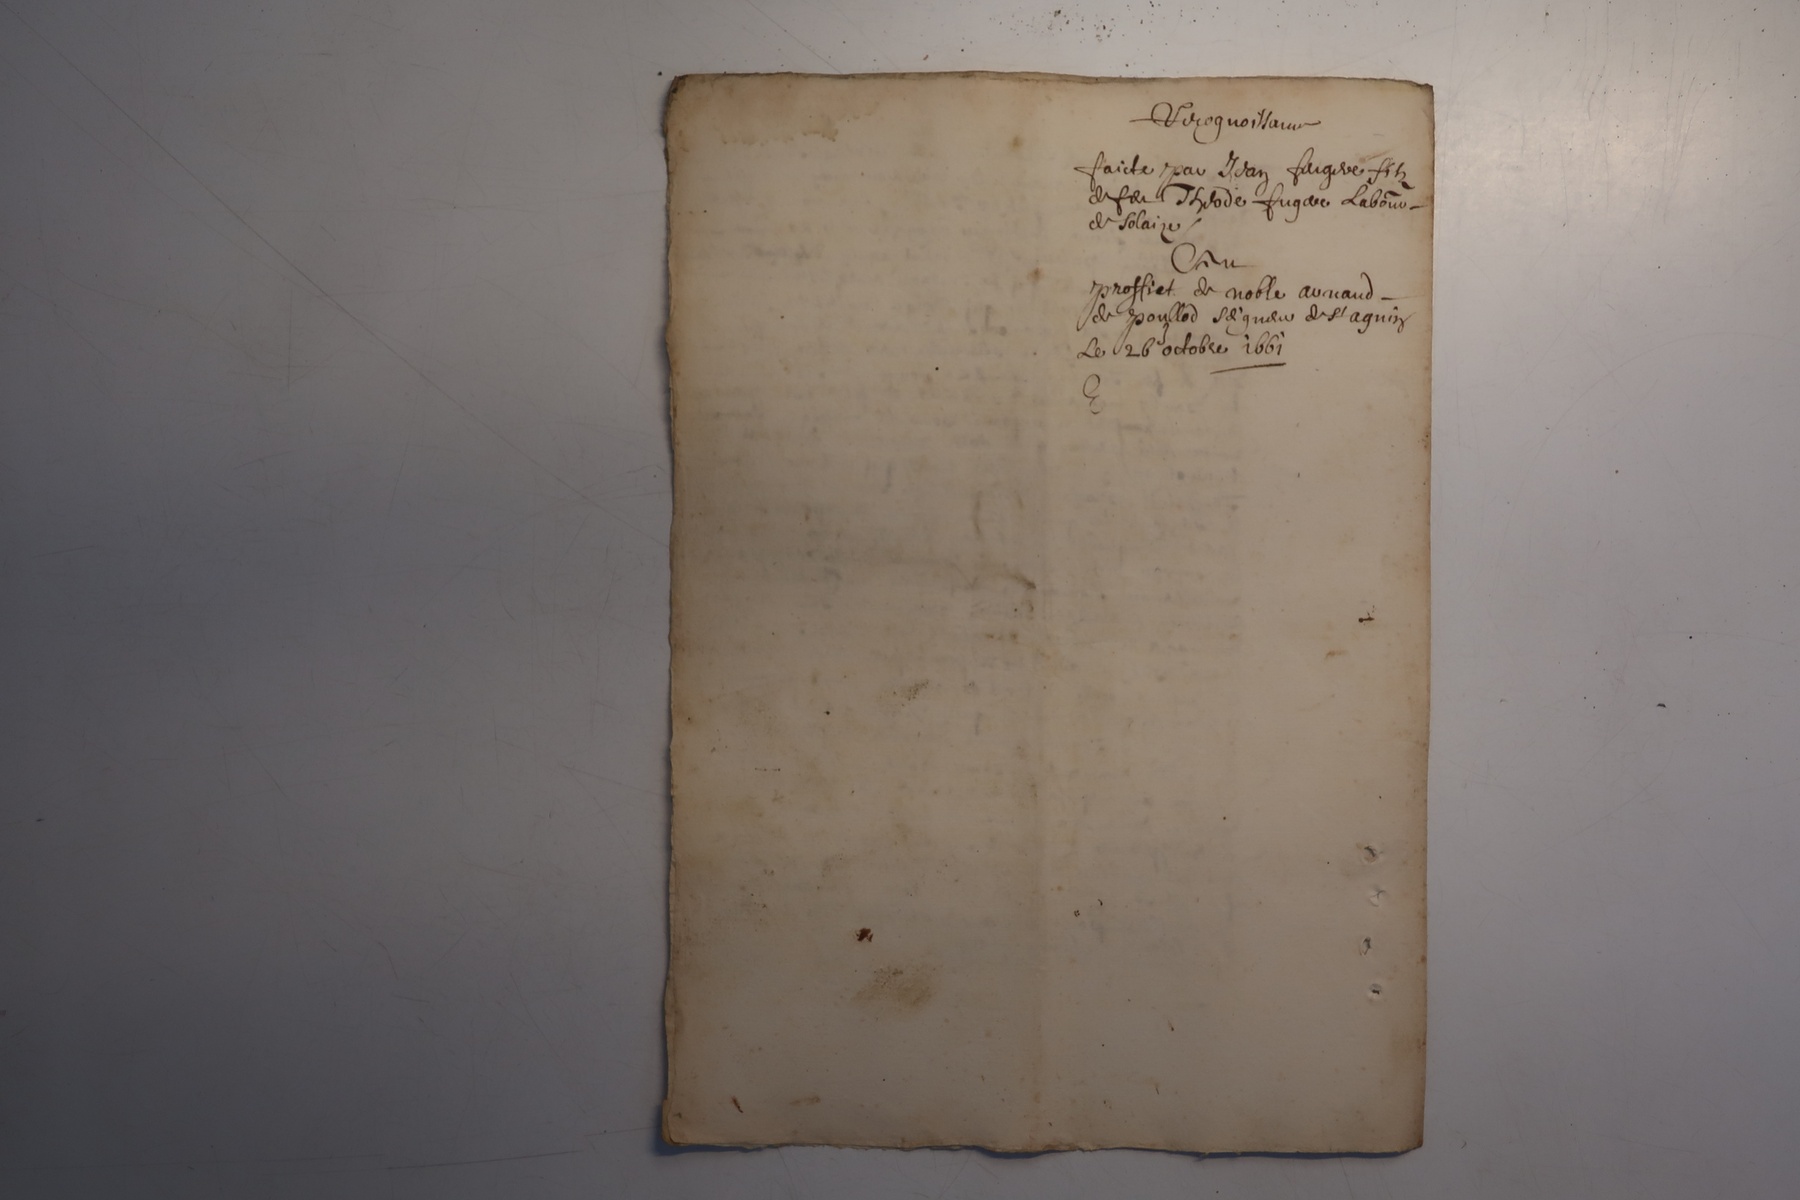 Recognoissance
faicte par Jean fugere filz
de feu Thodde fugere Labour
de Solaize
Au
proffict de noble arnaud
de poullod seigneur de St agnin
Le 26 octobre 1661